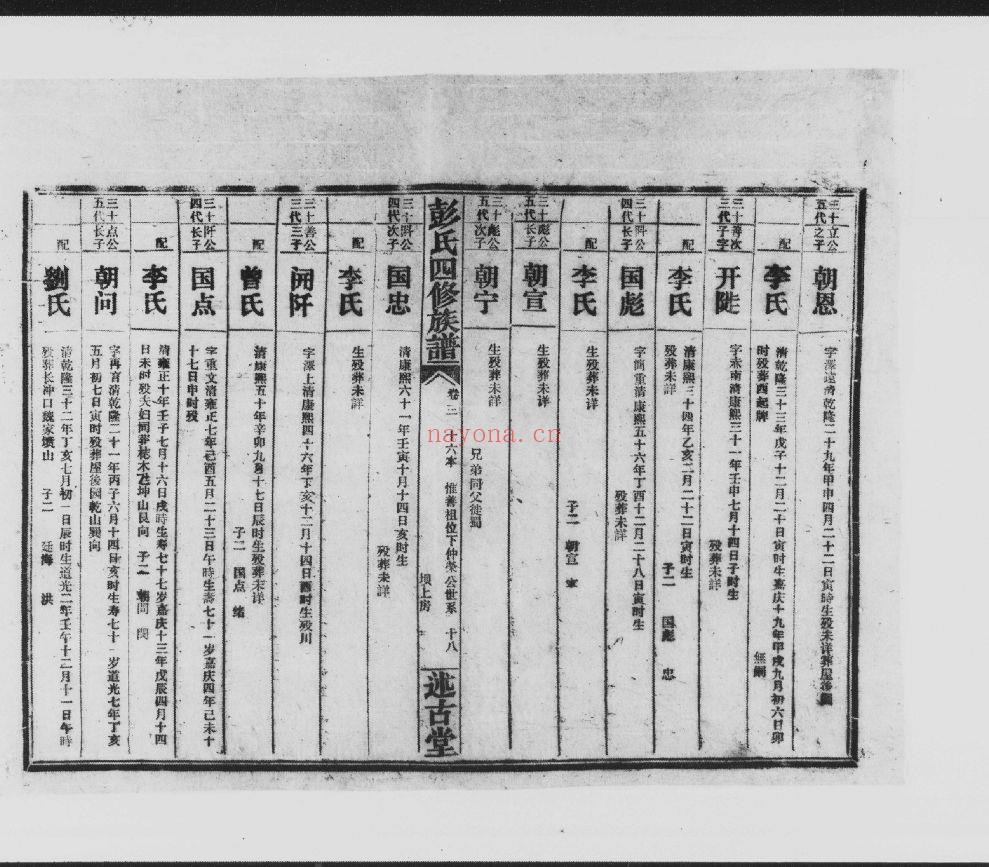 三十立公
五代之子
朝恩
字澤遠清乾隆二十九年甲申四月二十二日寅時生殁未详葬屋
配
李氏
清乾隆三十三年戊子十二月二十日寅时生嘉庆十九年甲戌九月初六日卯
时殁葬西起牌
無嗣
三十善次
三代子字
开陡
字赤南清康熙三十一年壬申七月十四日子时生
殁葬未详
配
李氏
清康熙三十四年乙亥二月二十二日寅时生
殁葬未详
子二 国彪 忠
三十陡公
四代长子
国彪
字简重清康熙五十六年丁酉十二月二十八日寅时生
殁葬未详
配
李氏
生殁葬未详
子二 朝宣 宁
三十彪公
五代长子
朝宣
生殁葬未详
三十彪公
五代次子
朝宁
生殁葬未详
兄弟同父徙蜀
彭氏四修族譜
卷三 十六本 惟善祖位下仲荣公世系 十八
坝上房
述古堂
三十陡公
四代次子
国忠
清康熙六十一年壬寅十月十四日亥时生
殁葬未详
配
李氏
生殁葬未详
三十善公
三代三子
開阡
字澤上清康熙四十六年丁亥十二月十四日酉时生殁川
配
曾氏
清康熙五十年辛卯九月十七日辰时生殁葬未详
子二 国点 绪
三十阡公
四代长子
国点
字重文清雍正七年己酉五月二十三日午時生壽七十一岁嘉庆四年己未十
十七日申时殁
配
李氏
清雍正十年壬子七月十六日戌時生寿七十七岁嘉庆十三年戊辰四月十四
日未时殁夫妇同葬 木 坤山艮向 子二 朝問 閔
三十点公
五代长子
朝问
字再育清乾隆二十一年丙子六月十四日亥时生寿七十一岁道光七年丁亥
五月初七日寅时殁葬屋後园乾山巽向
配
劉氏
清乾隆三十二年丁亥七月初一日辰时生道光二年壬午十二月十一日午時
殁葬长冲口魏家坝山 子二 廷海 洪
nayona.cn